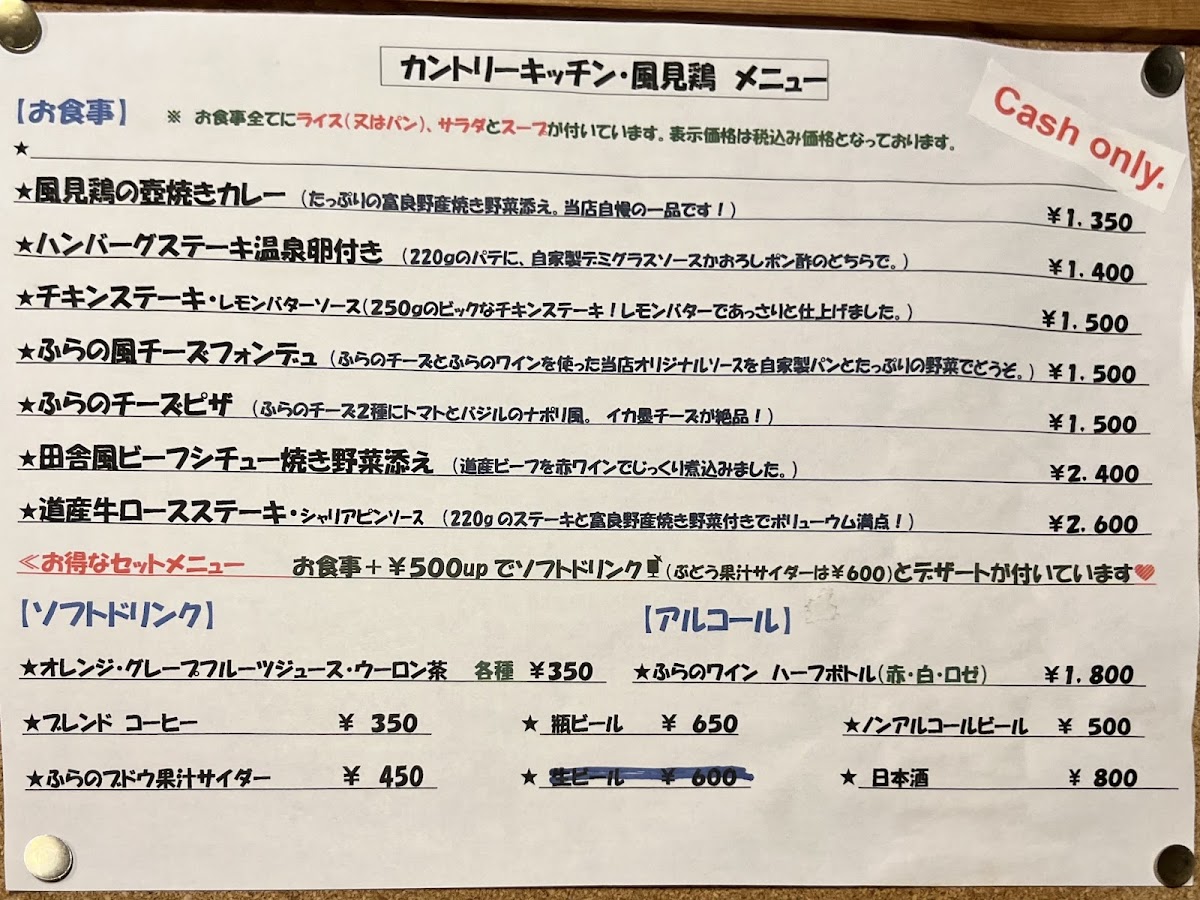 カントリーキッチン・風見鶏 メニュー
Cash only.
【お食事】 ※ お食事全てにライス(又はパン)、サラダとスープが付いています。表示価格は税込み価格となっております。
★
★風見鶏の壺焼きカレー (たっぷりの富良野産焼き野菜添え。当店自慢の一品です!) ¥1.350
★ハンバーグステーキ温泉卵付き (220gのパテに、自家製デミグラスソースかおろしポン酢のどちらで。) ¥1.400
★チキンステーキ・レモンバターソース(250gのビックなチキンステーキ!レモンバターであっさりと仕上げました。) ¥1.500
★ふらの風チーズフォンデュ (ふらのチーズとふらのワインを使った当店オリジナルソースを自家製パンとたっぷりの野菜でどうぞ。) ¥1.500
★ふらのチーズピザ (ふらのチーズ2種にトマトとバジルのナポリ風。 イカ墨チーズが絶品!) ¥1.500
★田舎風ビーフシチュー焼き野菜添え (道産ビーフを赤ワインでじっくり煮込みました。) ¥2.400
★道産牛ロースステーキ・シャリアピンソース (220gのステーキと富良野産焼き野菜付きでボリューウム満点!) ¥2.600
≪お得なセットメニュー お食事+¥500up でソフトドリンク(ぶどう果汁サイダーは¥600)とデザートが付いています♥
【ソフトドリンク】 【アルコール】
★オレンジ・グレープフルーツジュース・ウーロン茶 各種 ¥350 ★ふらのワイン ハーフボトル(赤・白・ロゼ) ¥1.800
★ブレンド コーヒー ¥ 350 ★ 瓶ビール ¥ 650 ★ノンアルコールビール ¥ 500
★ふらのブドウ果汁サイダー ¥ 450 ★ 生ビール ¥ 600 ★ 日本酒 ¥ 800